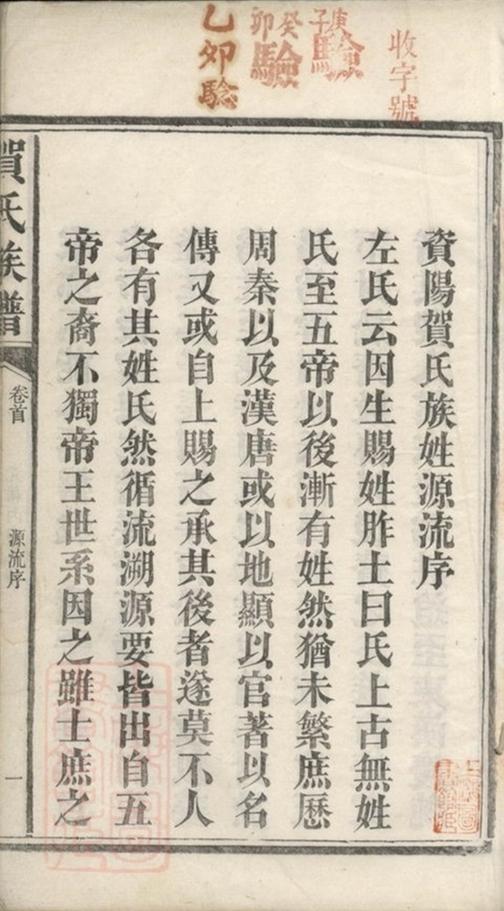 收字號
庚子驗
癸卯驗
乙卯驗
資陽賀氏族姓源流序
左氏云因生賜姓胙土曰氏上古無姓
氏至五帝以後漸有姓然猶未繁庶歷
周秦以及漢唐或以地顯以官著以名
傳又或自上賜之承其後者遂莫不人
各有其姓氏然循流溯源要皆出自五
帝之裔不獨帝王世系因之雖士庶之
賀氏族譜
卷首
源流序
一